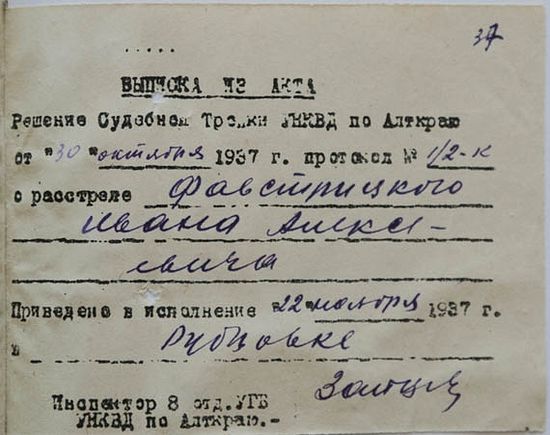 37
.....
ВЫПИСКА ИЗ АКТА
Решение Судебной Тройки УНКВД по Алткраю
от "30" октября 1937 г. протокол № 1/2-к
о расстреле Фавстрицкого
Ивана Алексе-
евича
Приведено в исполнение "22" ноября 1937 г.
в Рубцовке
Инспектор 8 отд.УГБ
УНКВД по Алткраю.-